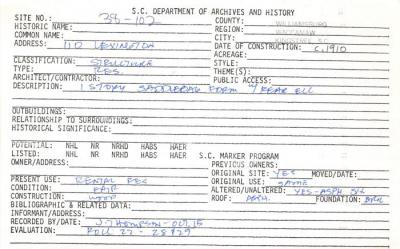 S.C. DEPARTMENT OF ARCHIVES AND HISTORY
SITE NO.: 38-102 COUNTY: WILLIAMSBURG
HISTORIC NAME: REGION: WACCAMAW
COMMON NAME: CITY: KINGSTREE, S.C.
ADDRESS: 110 LEXINGTON DATE OF CONSTRUCTION: C.1910
ACREAGE:
CLASSIFICATION: STRUCTURE STYLE:
TYPE: RES. THEME(S):
ARCHITECT/CONTRACTOR: PUBLIC ACCESS:
DESCRIPTION: 1 STORY SADDLEBAG FORM W/ REAR ELL
OUTBUILDINGS:
RELATIONSHIP TO SURROUNDINGS:
HISTORICAL SIGNIFICANCE:
POTENTIAL: NHL NR NRHD HABS HAER
LISTED: NHL NR NRHD HABS HAER S.C. MARKER PROGRAM
OWNER/ADDRESS: PREVIOUS OWNERS:
ORIGINAL SITE: YES MOVED/DATE:
PRESENT USE: RENTAL RES ORIGINAL USE: SAME
CONDITION: FAIR ALTERED/UNALTERED: YES-ASPH.
CONSTRUCTION: WOOD ROOF: ASPH. FOUNDATION: BRK
BIBLIOGRAPHIC & RELATED DATA:
INFORMANT/ADDRESS:
RECORDED BY/DATE: J. THOMPSON-OCT.
EVALUATION: ROLL 27-